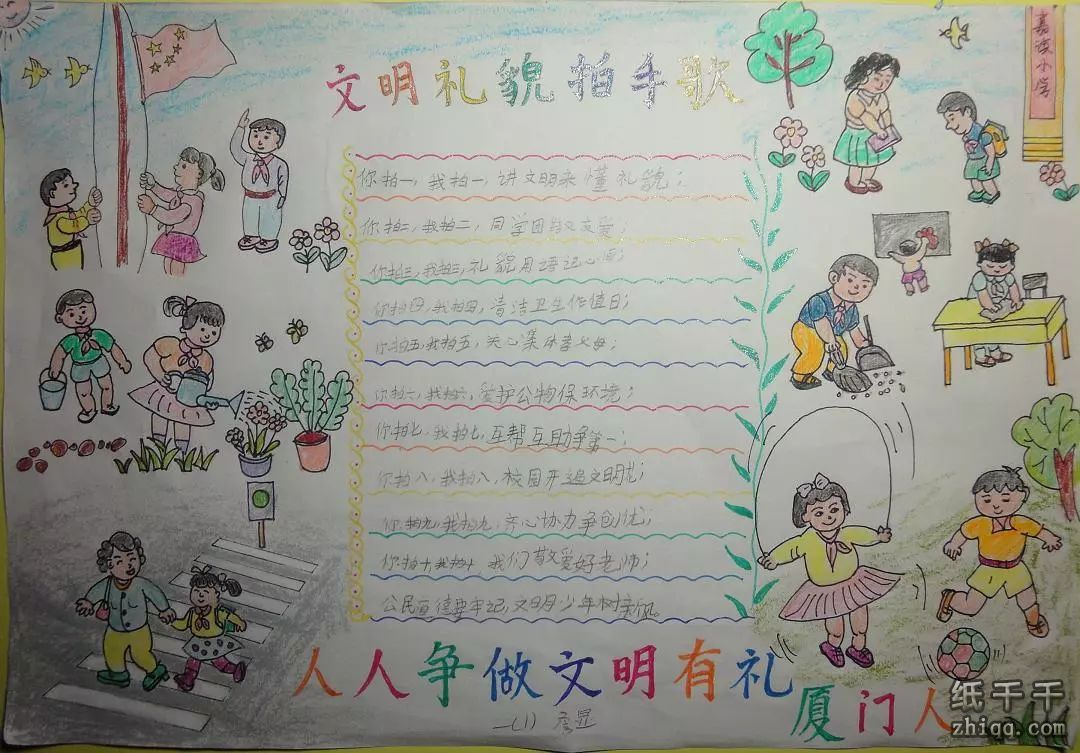 文明礼貌拍手歌
嘉滨小学
你拍一，我拍一，讲文明来懂礼貌；
你拍二，我拍二，同学团结又友爱；
你拍三，我拍三，礼貌用语记心间；
你拍四，我拍四，清洁卫生作值日；
你拍五我拍五，关心集体孝父母；
你拍六，我拍六，爱护公物保环境；
你拍七，我拍七，互帮互助争第一；
你拍八，我拍八，校园开遍文明花；
你拍九，我拍九，齐心协力争创优；
你拍十，我拍十，我们敬爱好老师；
公民道德要牢记，文明少年树新风
人人争做文明有礼
厦门人
一(1)
纸千千
zhiqq.com